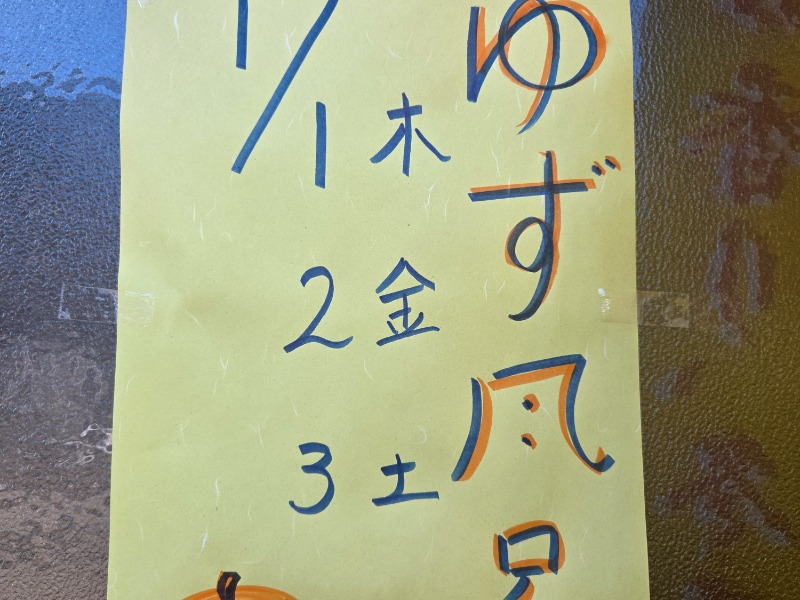 ゆず風呂
1/1 木
2 金
3 土